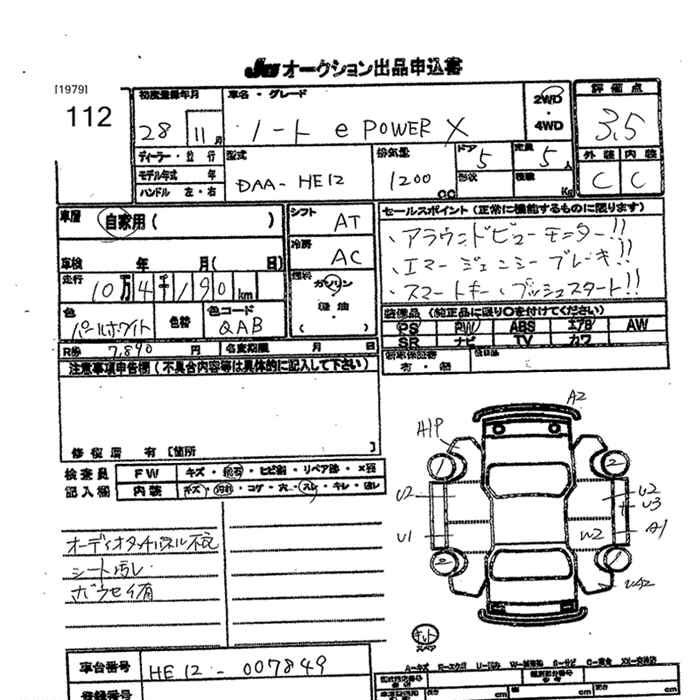 JU オークション出品申込書
[1979]
112
初度登録年月
28 11月
車名・グレード
ノート e POWER X
2WD
・
4WD
評価点
3.5
ディーラー・並行
モデル年式 年
ハンドル 左・右
型式
DAA-HE12
排気量
1200
CC
ドア
5
形状
定員
5人
積載
Kg
外装 内装
C C
車歴
自家用( )
車検 年 月( 日)
走行
10万4千190km
色
パールホワイト
色替
色コード
QAB
R券 7,890 円
名変期限 月 日
シフト
AT
冷房
AC
燃料
ガソリン
・
軽油
・
( )
セールスポイント(正常に機能するものに限ります)
、アラウンドビューモニター!!
、エマージェンシーブレーキ!!
、スマートキー プッシュスタート!!
装備品(純正品に限り○を付けてください)
PS PW ABS エアB AW
SR ナビ TV カワ
新車保証書
有・無
注意事項申告欄(不具合内容等は具体的に記入して下さい)
修復歴 有[箇所 ]
検査員
記入欄
FW キズ・飛石・ヒビ割・リペア跡・×要
内装 キズ・汚れ・コゲ・穴・スレ・キレ・傷レ
オーディオタッチパネル不良
シート汚レ
ボウセイ有
A2
A1P
2 2
U2 U2
U3
U1 W2 A1
2 2
UA2
キット
スペア
車台番号
HE12-007849
登録番号